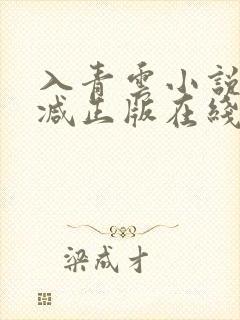 入青雲小說
减出版在綫
梁成才